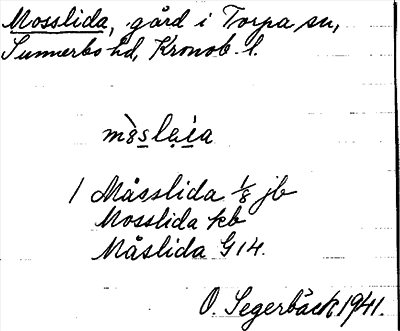 Mosslida, gård i Torpa sn,
Sunnerbo hd, Kronob. l.
1 Måsslida 1/8 jb
Mosslida kb
Måslida G14.
O. Segerbäck 1941.